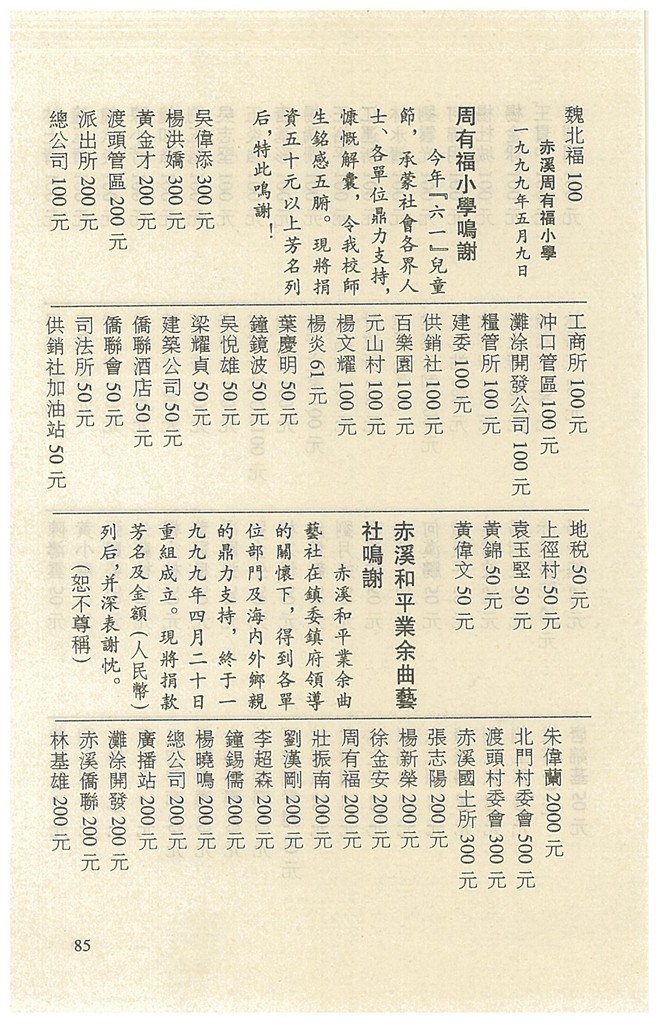 魏北福 100 元
赤溪周有福小學
一九九九年五月九日
周有福小學鳴謝
今年『六一』兒童
節，承蒙社會各界人
士、各單位鼎力支持，
慷慨解囊，令我校師
生銘感五腑。現將捐
資五十元以上芳名列
后，特此鳴謝！
吳偉添 300 元
楊洪嬌 300 元
黃金才 200 元
渡頭管區 200 元
派出所 200 元
總公司 100 元
工商所 100 元
冲口管區 100 元
灘涂開發公司 100 元
糧管所 100 元
建委 100 元
供銷社 100 元
百樂園 100 元
元山村 100 元
楊文耀 100 元
楊炎 61 元
葉慶明 50 元
鐘鏡波 50 元
吳悅雄 50 元
梁耀貞 50 元
建築公司 50 元
僑聯酒店 50 元
僑聯會 50 元
司法所 50 元
供銷社加油站 50 元
地稅 50 元
上徑村 50 元
袁玉堅 50 元
黃錦 50 元
黃偉文 50 元
赤溪和平業余曲藝
社鳴謝
赤溪和平業余曲
藝社在鎮委鎮府領導
的關懷下，得到各單
位部門及海內外鄉親
的鼎力支持，終于一
九九九年四月二十日
重組成立。現將捐款
芳名及金額（人民幣）
列后，并深表謝忱。
（恕不尊稱）
朱偉蘭 2000 元
北門村委會 500 元
渡頭村委會 300 元
赤溪國土所 300 元
張志陽 200 元
楊新榮 200 元
徐金安 200 元
周有福 200 元
壯振南 200 元
劉漢剛 200 元
李超森 200 元
鐘錫儒 200 元
楊曉鳴 200 元
總公司 200 元
廣播站 200 元
灘涂開發 200 元
赤溪僑聯 200 元
林基雄 200 元
85